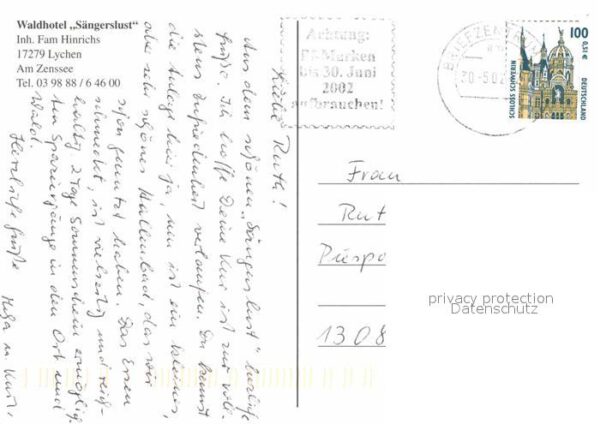 Waldhotel „Sängerslust"
Inh. Fam Hinrichs
17279 Lychen
Am Zenssee
Tel. 03 98 88 / 6 46 00
Achtung:
Pf-Marken
bis 30. Juni
2002
aufbrauchen!
BRIEFZENTR
20-5.02
100
0,51 €
SCHLOSS SCHWERIN
DEUTSCHLAND
Liebe Ruth!
Aus dem schönen „Sängerslust" herzliche
Grüße. Ich hoffe Deine Kur ist zur voll-
sten Zufriedenheit verlaufen. Du kennst
die Anlage hier ja, nun ist ein kleines,
aber sehr schönes Hallenbad, das wir
schon genutzt haben. Das Essen
schmeckt, ist vielseitig und reich-
haltig. 2 Tage Sonnenschein ermöglich-
ten Spaziergänge in den Ort und
Wald.
Herzliche Grüße
Frau
Rut
Piespo
1308
privacy protection
Datenschutz